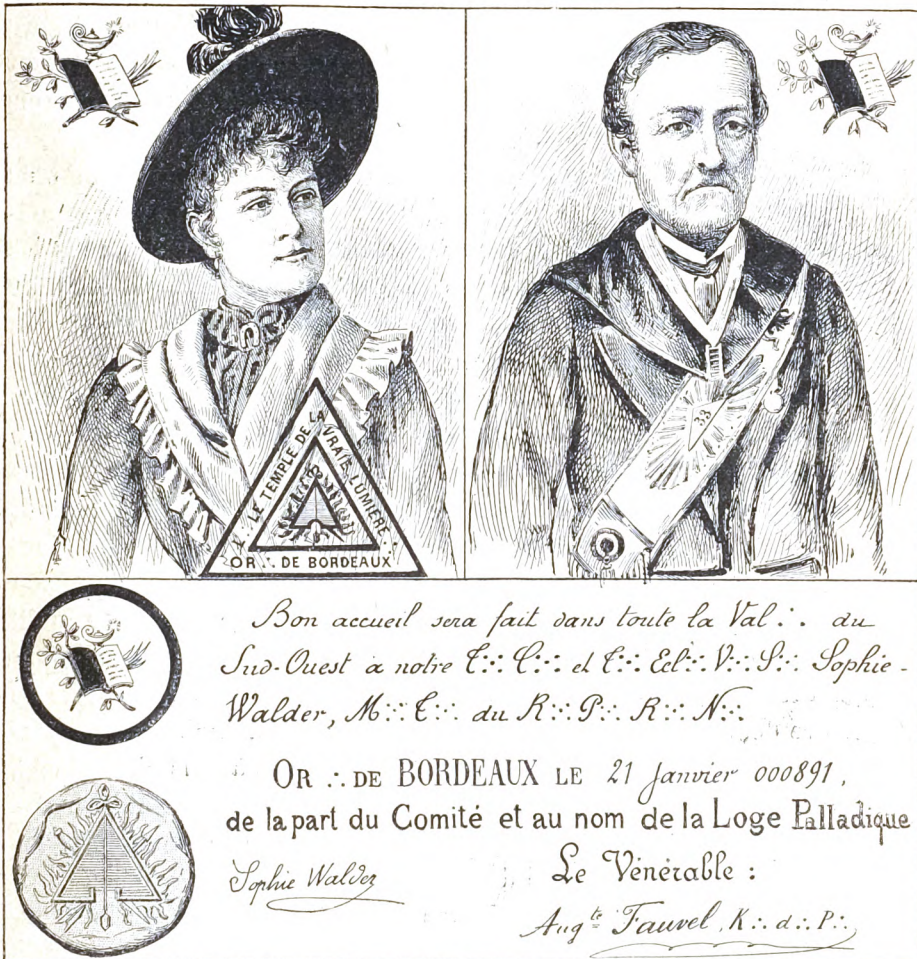 33
LE TEMPLE DE LA VRAIE LUMIÈRE
OR ∴ DE BORDEAUX
Bon accueil sera fait dans toute la Val ∴ du
Sud-Ouest a notre T∴ C∴ et T∴ Ecl∴ V∴ S∴ Sophie-
Walder, M∴ T∴ du R∴ P∴ R∴ N∴
OR ∴ DE BORDEAUX LE 21 Janvier 000891,
de la part du Comité et au nom de la Loge Palladique
Sophie Walder
Le Vénérable :
Aug^te Fauvel, K∴ d∴ P∴